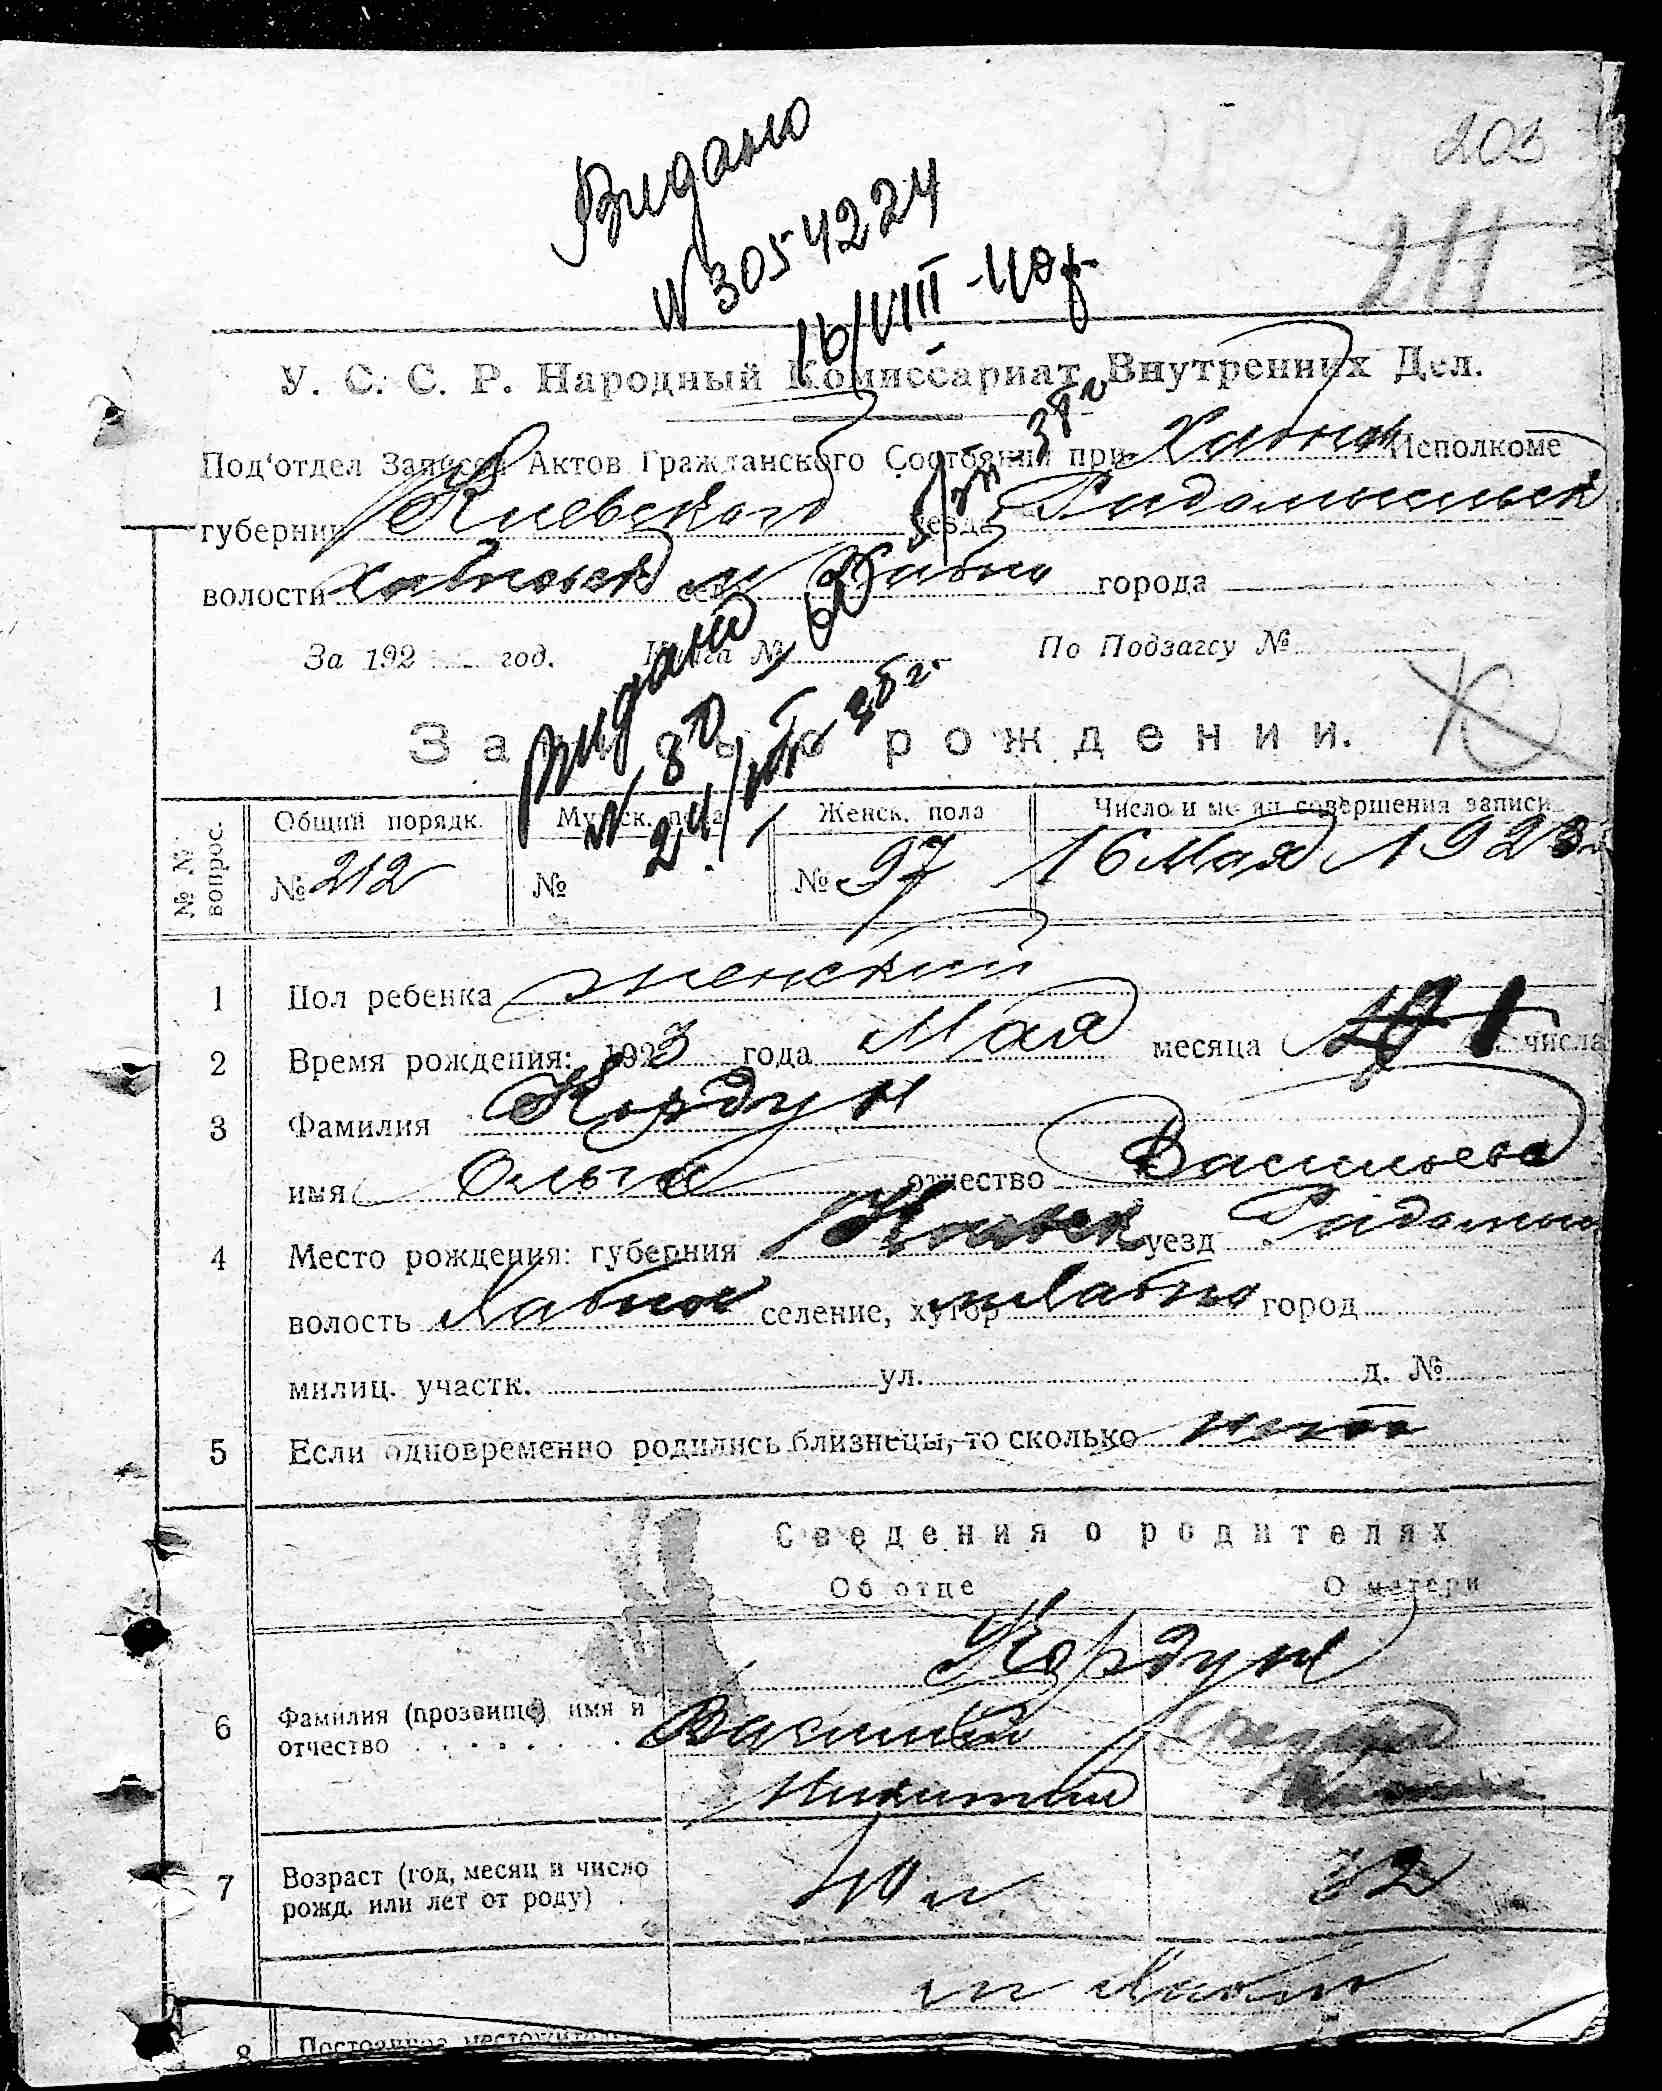 203
211
Видано
N 3054224
16/VIII-40 р.
У. С. С. Р. Народный Комиссариат Внутренних Дел.
Под'отдел Записей Актов Гражданского Состояния при Хабном Исполкоме
губернии Киевского уезда Радомысльск
волости Хабновск села м Хабно города
За 192 год. Книга № По Подзагсу №
Видано
N 80
Запись о рождении.
№ № вопрос.
Общий порядк. Мужск. пола Женск. пола Число и месяц совершения записи
№ 212 № № 97 16 Мая 1923
1 Пол ребенка женский
2 Время рождения: 1923 года Мая месяца 1 числа
3 Фамилия Кордун
имя Ольга отчество Васильева
4 Место рождения: губерния уезд Радомыс
волость Хабное селение, хутор м Хабно город
милиц. участк. ул. д. №
5 Если одновременно родились близнецы, то сколько нет
Сведения о родителях
Об отце О матери
Кордун
6 Фамилия (прозвище) имя и отчество Василий
Никитин
7 Возраст (год, месяц и число рожд. или лет от роду) 40 л 32
м Хабно
8 Постоянное местожительс